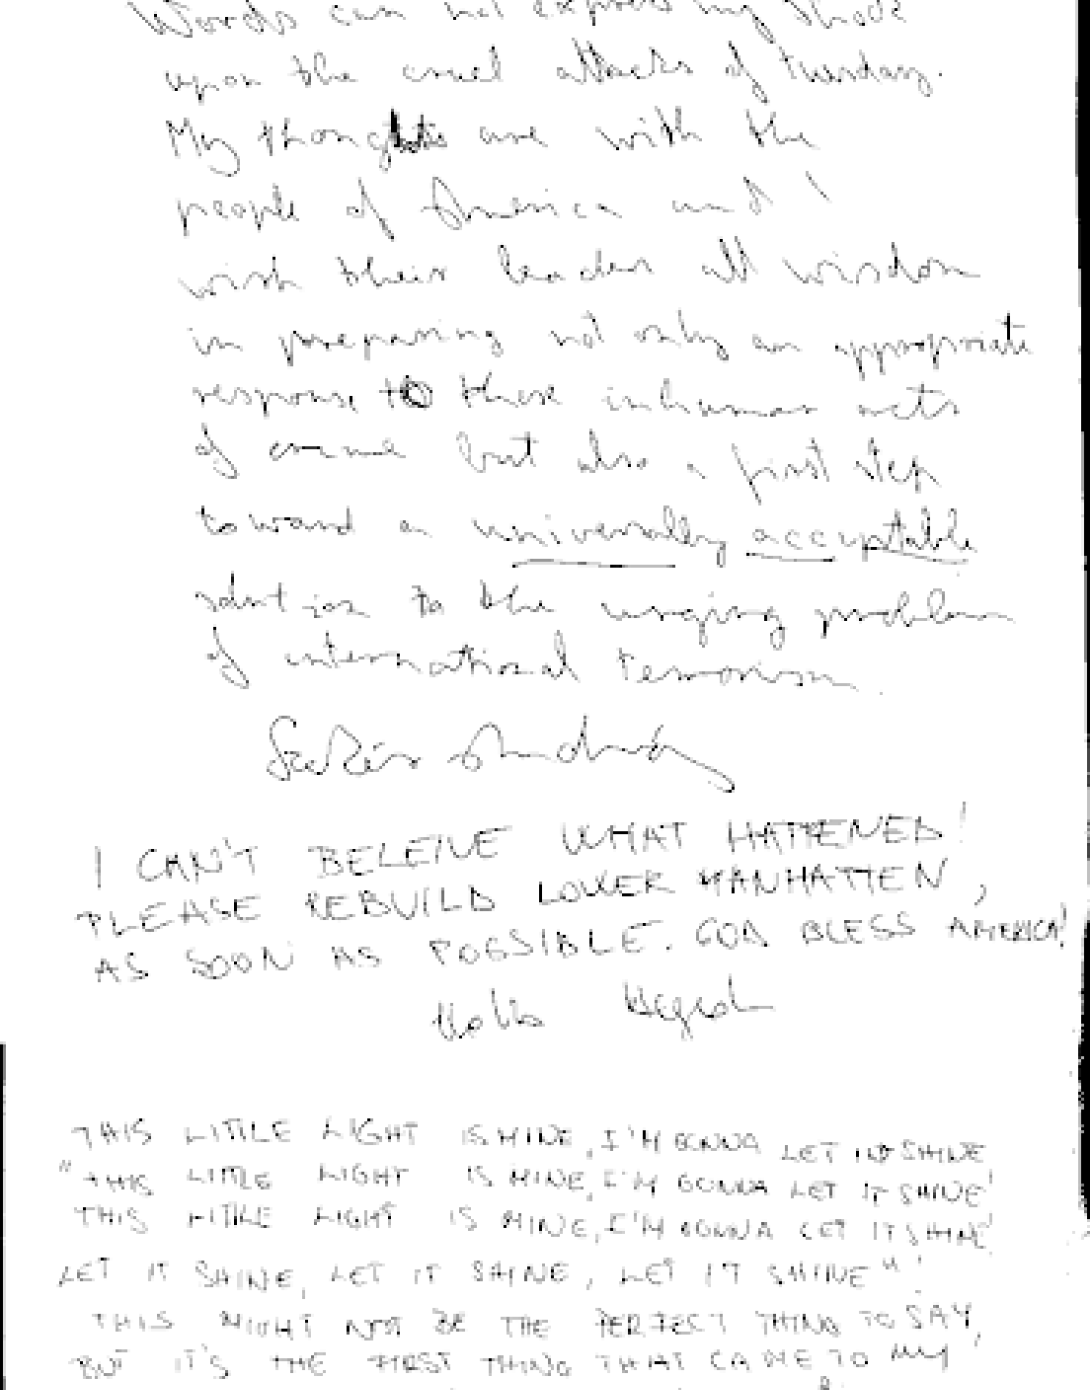 Words can not express my shock
upon the cruel attacks of tuesday.
My thoughts are with the
people of America and I
wish their leaders all wisdom
in preparing not only an appropriate
response to these inhuman acts
of crime but also a first step
toward a universally acceptable
solution to the urging problem
of international terrorism.
I CAN'T BELEIVE WHAT HAPPENED!
PLEASE REBUILD LOWER MANHATTEN,
AS SOON AS POSSIBLE. GOD BLESS AMERICA!
THIS LITTLE LIGHT IS MINE, I'M GONNA LET IT SHINE
"THIS LITTLE LIGHT IS MINE, I'M GONNA LET IT SHINE!
THIS LITTLE LIGHT IS MINE, I'M GONNA LET IT SHINE!
LET IT SHINE, LET IT SHINE, LET IT SHINE"!
THIS MIGHT NOT BE THE PERFECT THING TO SAY,
BUT IT'S THE FIRST THING THAT CAME TO MY